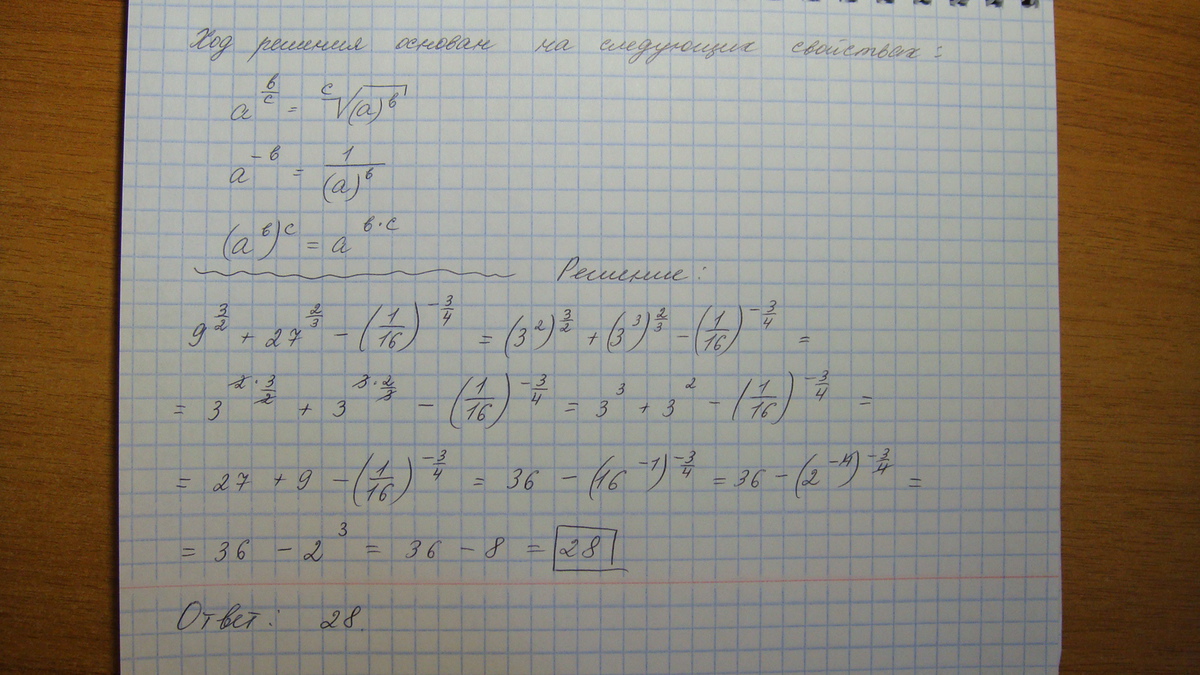 Ход решения основан на следующих свойствах:
a^(b/c) = ᶜ√(a)^b
a^(-b) = 1/(a)^b
(a^b)^c = a^(b·c)
Решение:
9^(3/2) + 27^(2/3) - (1/16)^(-3/4) = (3^2)^(3/2) + (3^3)^(2/3) - (1/16)^(-3/4) =
= 3^(2·3/2) + 3^(3·2/3) - (1/16)^(-3/4) = 3^3 + 3^2 - (1/16)^(-3/4) =
= 27 + 9 - (1/16)^(-3/4) = 36 - (16^(-1))^(-3/4) = 36 - (2^(-4))^(-3/4) =
= 36 - 2^3 = 36 - 8 = 28
Ответ: 28.